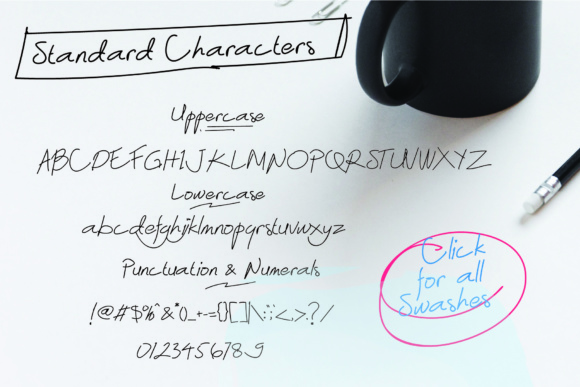 Standard Characters
Uppercase
ABCDEFGHIJKLMNOPQRSTUVWXYZ
Lowercase
abcdefghijklmnopqrstuvwxyz
Punctuation & Numerals
!@#$%^&*()_+-={}[]|\:;<,>.?/
0123456789
Click
for all
Swashes